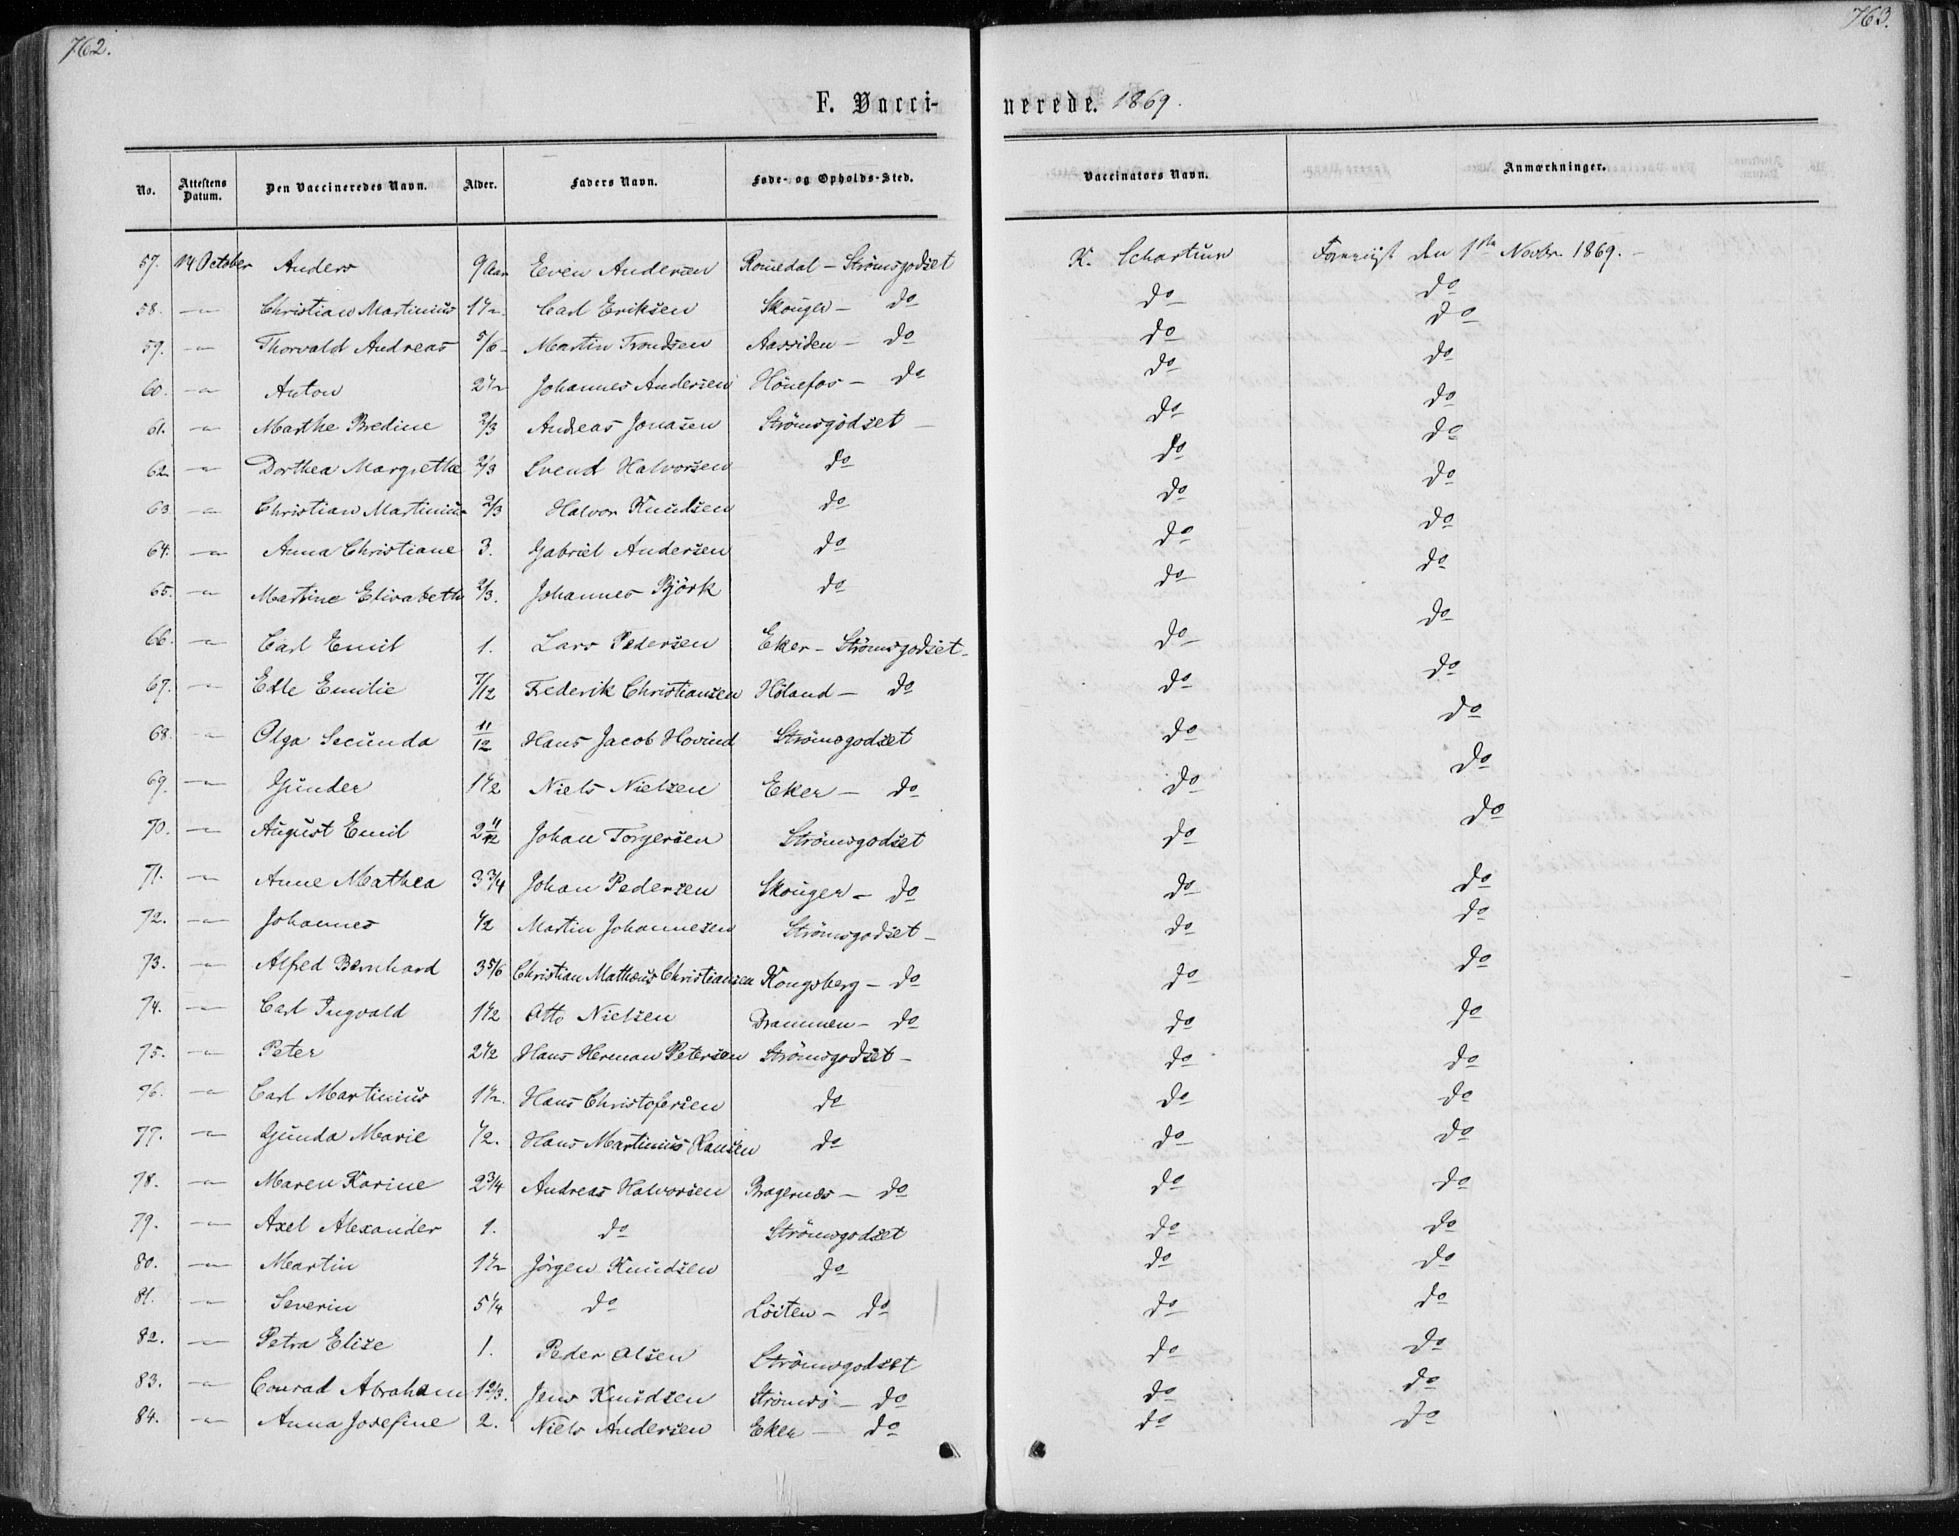 762.
763.
F. Vacci-nerede. 1869.
No. Attestens Datum. Den Vaccineredes Navn. Alder. Faders Navn. Føde- og Opholds-Sted. Vaccinators Navn. Anmærkninger.
57. 14 October Anders 9 Aar Even Andersen Romedal – Strömsgodset K. Schartum Foreviist den 1ste Novbr. 1869. –
58. —"— Christian Martinius 1 1/2. Carl Eriksen Skouger – do do do
59. —"— Thorvald Andreas 5/6 Martin Trondsen Aassiden – do do do
60. —"— Anton 2 1/2 Johannes Andersen Hönefos – do do do
61. —"— Marthe Bredine 2/3 Andreas Jonasen Strömsgodset – do do
62. —"— Dorthea Margrethe 2/3 Svend Halvorsen do do do
63. —"— Christian Martinius 2/3 Halvor Knudsen do do do
64. —"— Anna Christiane 3. Gabriel Andersen do do do
65. —"— Martine Elisabeth 2/3. Johannes Björk do do do
66. —"— Carl Emil 1. Lars Pedersen Eker – Strömsgodset. do do
67. —"— Edle Emilie 7/12 Frederik Christiansen Höland – do do do
68. —"— Olga Secunda 11/12 Hans Jacob Hovind Strömsgodset do do
69. —"— Gunder 1 1/2 Niels Nielsen Eker – do do do
70. —"— August Emil 2 11/12 Johan Torgersen Strömsgodset do do
71. —"— Anne Mathea 3 3/4 Johan Pedersen Skouger – do do do
72. —"— Johannes 1/2 Martin Johannesen Strömsgodset – do do
73. —"— Alfred Bernhard 3 5/6 Christian Mathæus Christiansen Kongsberg – do do do
74. —"— Carl Ingvald 1 1/2 Otto Nielsen Drammen – do do do
75. —"— Peter 2 1/2 Hans Herman Petersen Strömsgodset – do do
76. —"— Carl Martinius 1 1/2. Hans Christofersen do do do
77. —"— Gunda Marie 1/2. Hans Martinius Hansen do do do
78. —"— Maren Karine 2 3/4 Andreas Halvorsen Bragernes – do do do
79. —"— Axel Alexander 1. do Strömsgodset do do
80. —"— Martin 1 1/2 Jörgen Knudsen do do do
81. —"— Severin 5 1/4 do Löiten – do do do
82. —"— Petra Elise 1. Peder Olsen Strömsgodset do do
83. —"— Conrad Abraham 1 2/3. Jens Knudsen Strömsö – do do do
84. —"— Anna Josefine 2. Niels Andersen Eker – do do do